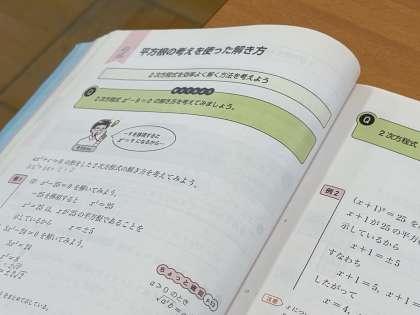 平方根の考えを使った解き方
2次方程式を効率よく解く方法を考えよう
Q
2次方程式 x²−9=0 の解き方を考えてみましょう。
−9を移項すると
x²=9 になるから…
ax²+c=0 の形をした2次方程式の解き方を考えてみよう。
例1
x²−25=0 を解いてみよう。
−25を移項すると x²=25
x²=25 は、x が25の平方根であることを
示しているから x=±5
3x²−24=0 を解いてみよう。
3x²=24
x²=8
ちょっと確認
a>0 のとき
Q
2次方程式
例2
(x+1)²=25 を
x+1 が25の平方
示しているから
x+1=±5
すなわち
x+1=5, x+1=
したがって
x=4,
注意